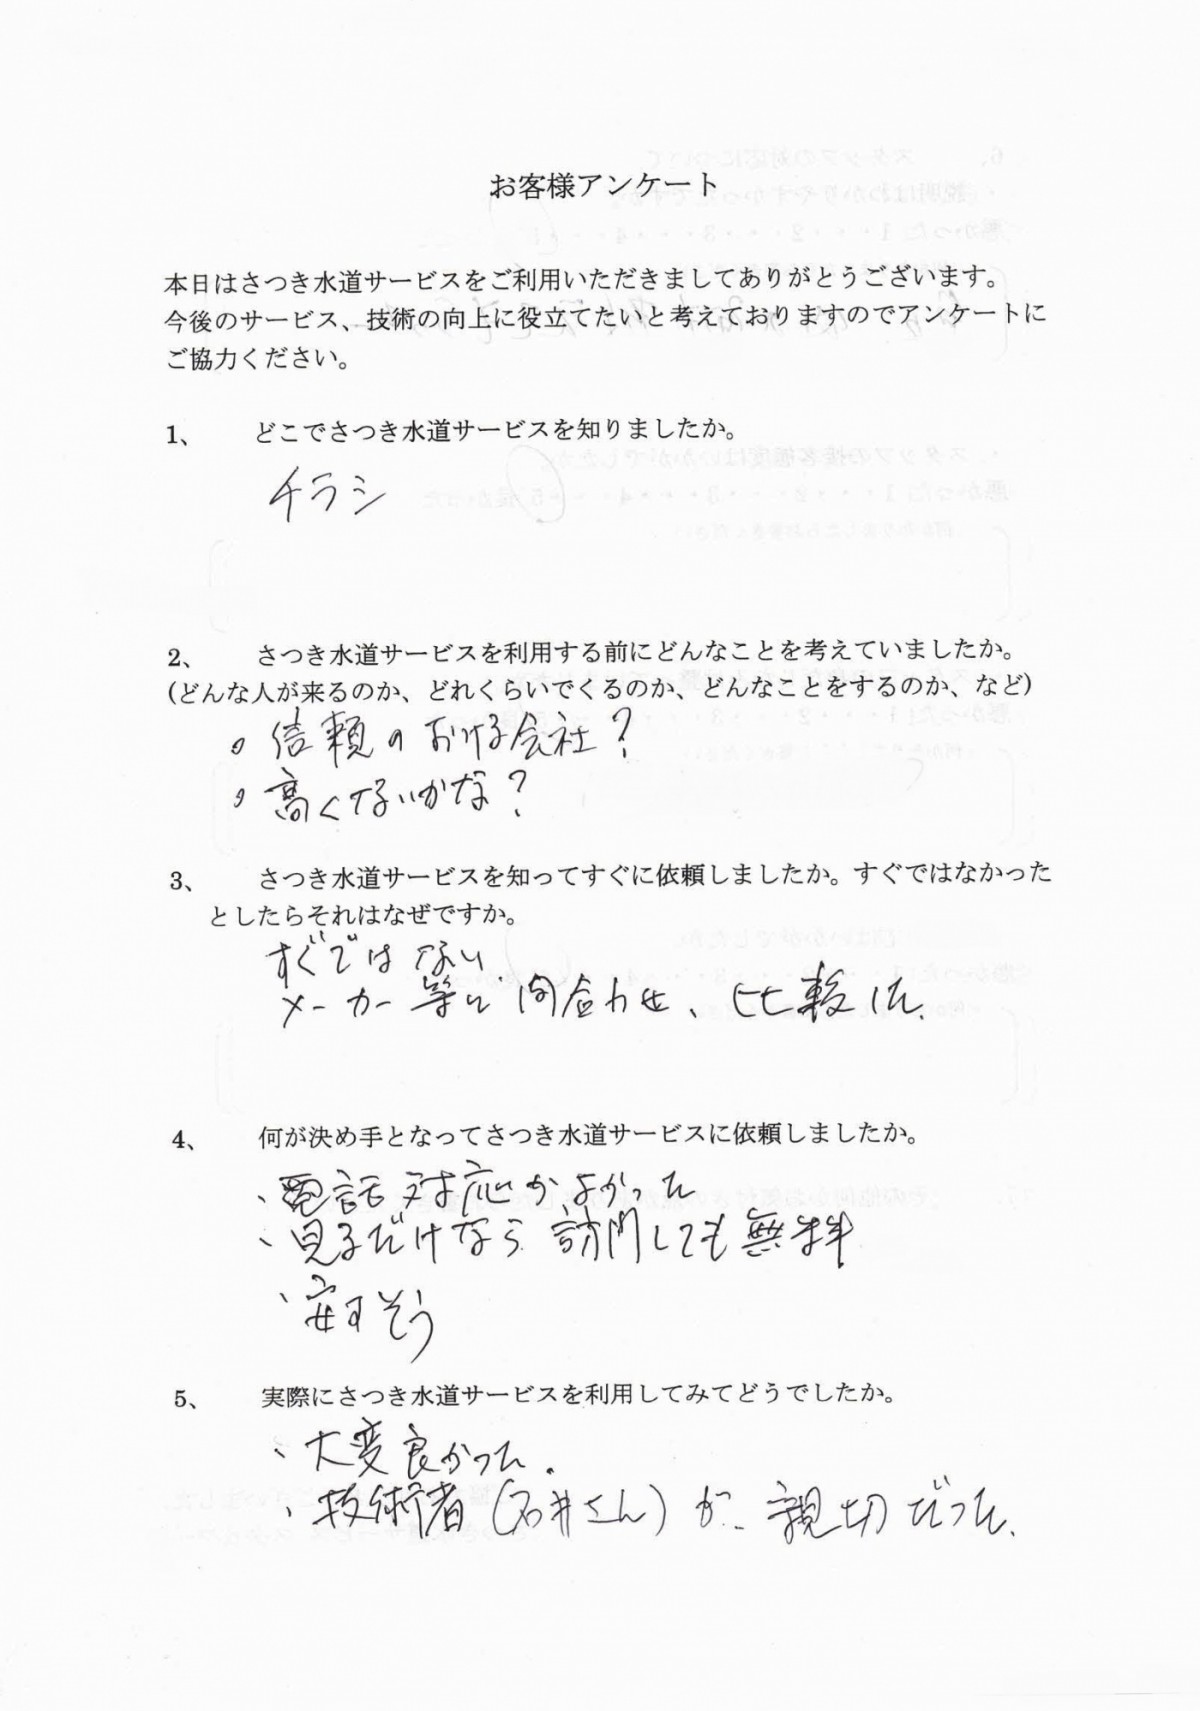 お客様アンケート
本日はさつき水道サービスをご利用いただきましてありがとうございます。
今後のサービス、技術の向上に役立てたいと考えておりますのでアンケートに
ご協力ください。
1、 どこでさつき水道サービスを知りましたか。
チラシ
2、 さつき水道サービスを利用する前にどんなことを考えていましたか。
(どんな人が来るのか、どれくらいでくるのか、どんなことをするのか、など)
・信頼のおける会社?
・高くないかな?
3、 さつき水道サービスを知ってすぐに依頼しましたか。すぐではなかった
としたらそれはなぜですか。
すぐではない
メーカー等に問合わせ、比較した.
4、 何が決め手となってさつき水道サービスに依頼しましたか。
・電話対応がよかった
・見るだけなら訪問しても無料
・安すそう
5、 実際にさつき水道サービスを利用してみてどうでしたか。
・大変良かった.
・技術者(石井さん)が、親切だった.